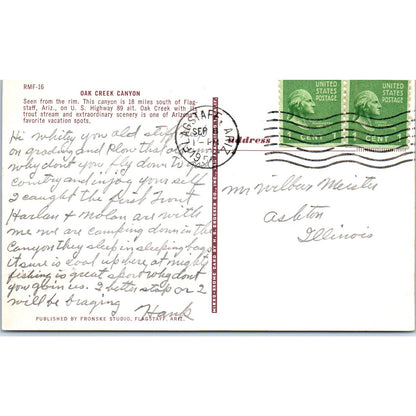 RMF-16
OAK CREEK CANYON
Seen from the rim. This canyon is 18 miles south of Flag-
staff, Ariz., on U. S. Highway 89 alt. Oak Creek with its
trout stream and extraordinary scenery is one of Arizona's
favorite vacation spots.
Hi whitey you old stiff
on grading and Plow that
why dont you fly down to
country and injoy your self
I caught the first Trout
Harlan + Molan are with
me we are camping down in the
Canyon they sleep in sleeping bags
it sure is cool up here at nights
fishing is great sport why dont
you join us. I better stop or I
will be braging
Hank
PUBLISHED BY FRONSKE STUDIO, FLAGSTAFF, ARIZ.
FLAGSTAFF, ARIZ.
SEP
PM
UNITED
STATES
POSTAGE
1 CENT
UNITED
STATES
POSTAGE
CENT 1
Address
Mr Wilbur Meister
Ashton
Illinois